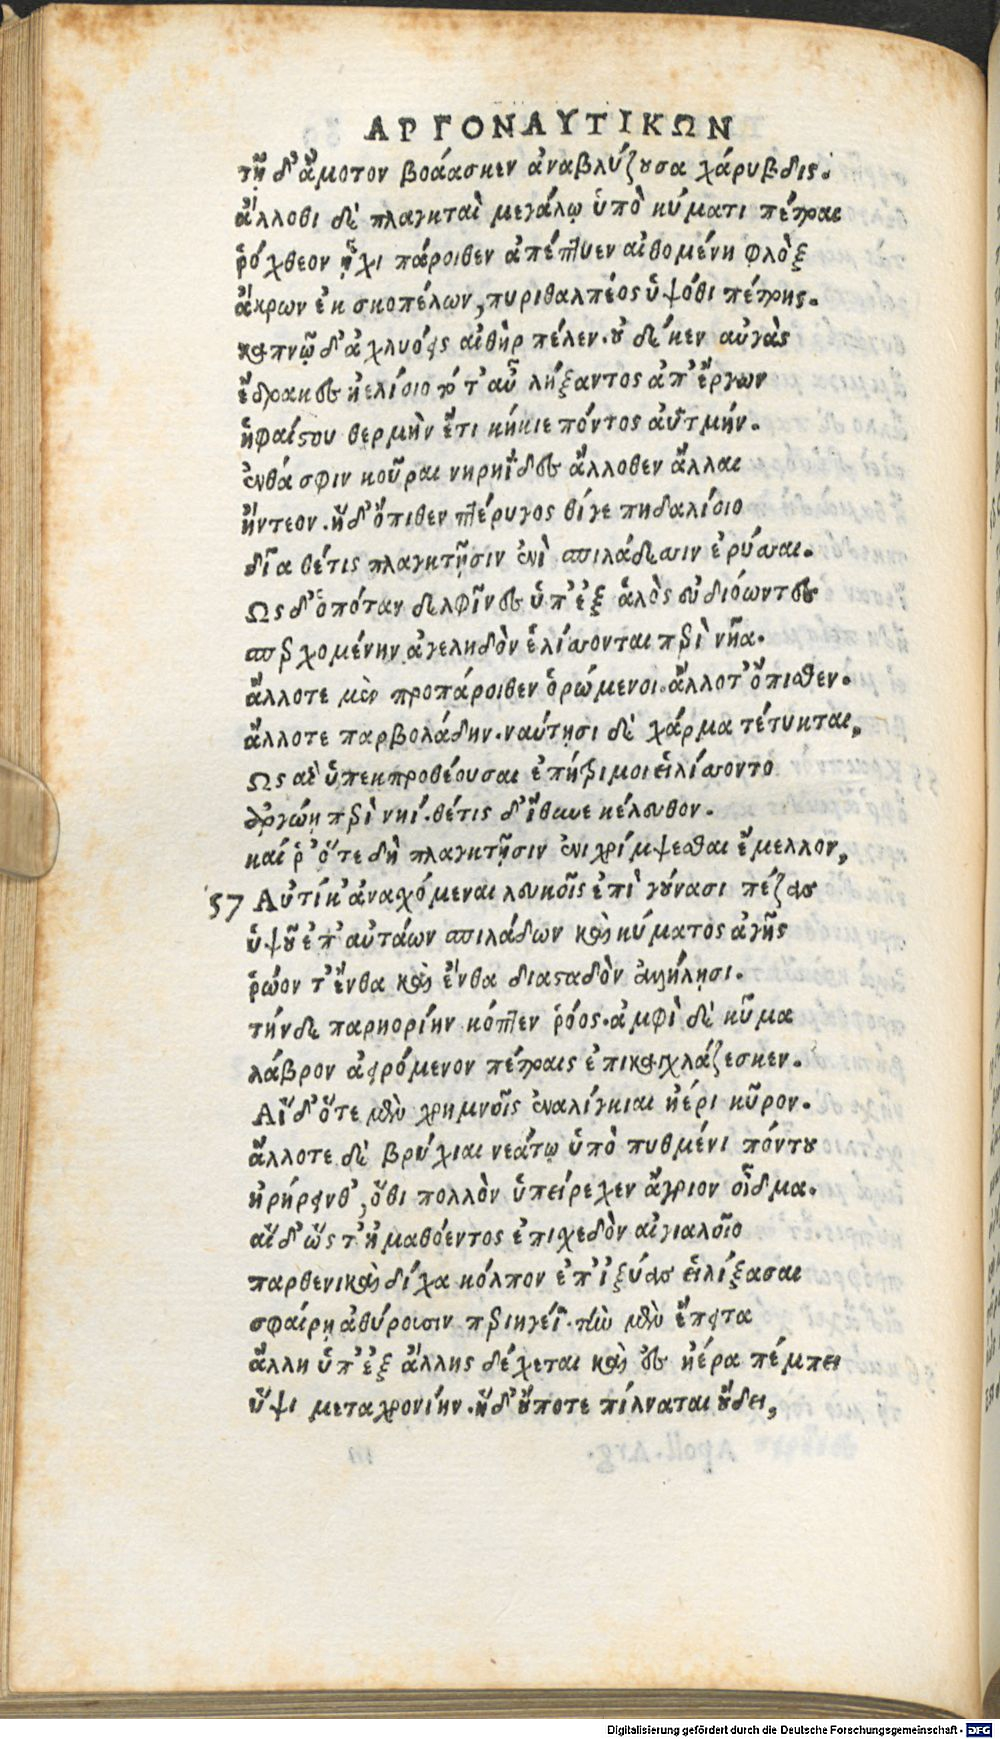 ΑΡΓΟΝΑΥΤΙΚΩΝ
τῇ δ' ἄμοτον βοάασκεν ἀναβλύζουσα χάρυβδις.
ἄλλοθι δὲ πλαγκταὶ μεγάλῳ ὑπὸ κύματι πέτραι
ῥόχθεον ᾗχι πάροιθεν ἀπέπτυεν αἰθομένη φλὸξ
ἄκρων ἐκ σκοπέλων, πυριθαλπέος ὑψόθι πέτρης.
καπνῷ δ' ἀχλυόεις αἰθὴρ πέλεν. οὐδέ κεν αὐγὰς
ἔδρακες ἠελίοιο τότ' αὖ λήξαντος ἀπ' ἔργων
ἡφαίστου θερμὴν ἔτι κήκιε πόντος ἀϋτμήν.
ἔνθά σφιν κοῦραι νηρηΐδες ἄλλοθεν ἄλλαι
ἤντεον. ἡ δ' ὄπιθεν πτέρυγος θίγε πηδαλίοιο
δῖα θέτις πλαγκτῇσιν ἐνὶ σπιλάδεσσιν ἐρύσσαι.
Ως δ' ὁπόταν δελφῖνες ὑπ' ἐξ ἁλὸς εὐδιόωντες
σπερχομένην ἀγεληδὸν ἑλίσσονται περὶ νῆα.
ἄλλοτε μὲν προπάροιθεν ὁρώμενοι. ἄλλοτ' ὄπισθεν.
ἄλλοτε παρβολάδην. ναύτῃσι δὲ χάρμα τέτυκται,
Ως αἱ ὑπεκπροθέουσαι ἐπήτριμοι εἱλίσσοντο
ἀργώῃ περὶ νηΐ. θέτις δ' ἴθυνε κέλευθον.
καί ῥ' ὅτε δὴ πλαγκτῇσιν ἐνιχρίμψεσθαι ἔμελλον,
57 Αὐτίκ' ἀνασχόμεναι λευκοῖς ἐπὶ γούνασι πέζας
ὑψοῦ ἐπ' αὐτάων σπιλάδων καὶ κύματος ἀγῆς
ῥώοντ' ἔνθα καὶ ἔνθα διασταδὸν ἀλλήλῃσι.
τήνδε παρηορίην κόπτεν ῥόος. ἀμφὶ δὲ κῦμα
λάβρον ἀειρόμενον πέτραις ἐπικαιχλάζεσκεν.
Αἵ δ' ὅτε μὲν κρημνοῖς ἐναλίγκιαι ἠέρι κῦρον.
ἄλλοτε δὲ βρύχιαι νεάτῳ ὑπὸ πυθμένι πόντου
ἠρήρεινθ', ὅθι πολλὸν ὑπείρεχεν ἄγριον οἶδμα.
αἵ δ' ὥς τ' ἠμαθόεντος ἐπισχεδὸν αἰγιαλοῖο
παρθενικαὶ δίχα κόλπον ἐπ' ἰξύας εἱλίξασαι
σφαίρῃ ἀθύρουσιν περιηγέϊ. τὴν μὲν ἔπειτα
ἄλλη ὑπ' ἐξ ἄλλης δέχεται καὶ ἐς ἠέρα πέμπει
ὕψι μεταχρονίην. ἡ δ' οὔποτε πίλναται οὔδει,
Digitalisierung gefördert durch die Deutsche Forschungsgemeinschaft - DFG